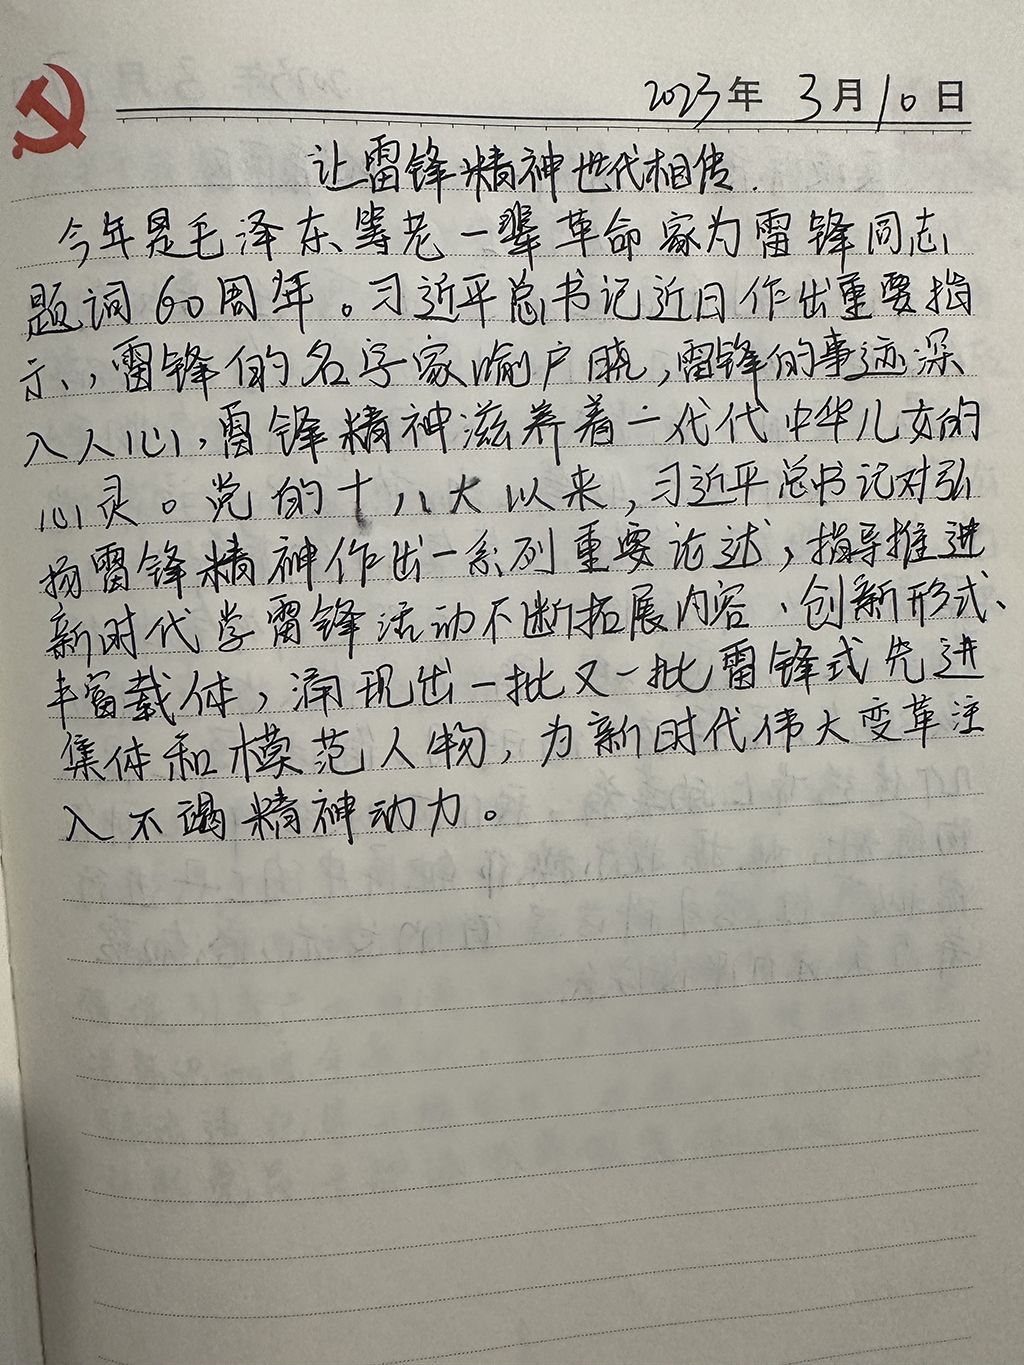 2023年 3月10日
让雷锋精神世代相传.
今年是毛泽东等老一辈革命家为雷锋同志
题词60周年。习近平总书记近日作出重要指
示,雷锋的名字家喻户晓,雷锋的事迹深
入人心,雷锋精神滋养着一代代中华儿女的
心灵。党的十八大以来,习近平总书记对弘
扬雷锋精神作出一系列重要论述,指导推进
新时代学雷锋活动不断拓展内容、创新形式、
丰富载体,涌现出一批又一批雷锋式先进
集体和模范人物,为新时代伟大变革注
入不竭精神动力。